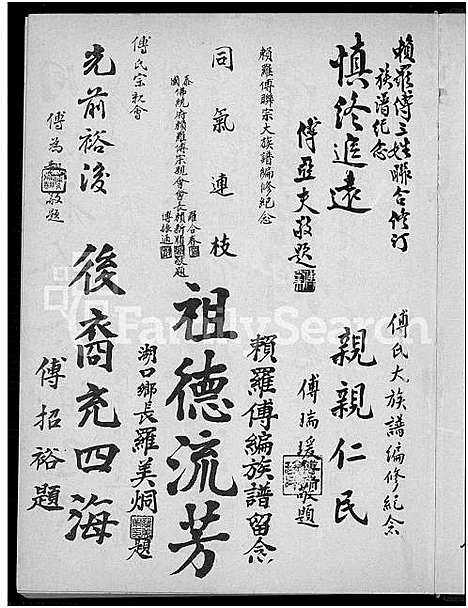 賴羅傅三姓聯合修訂
族譜紀念
慎終追遠
傅亞夫敬題
賴羅傅聯宗大族譜編修紀念
同氣連枝
泰國佛統府賴羅傅宗親會會長
羅合春
賴新
傅振通
敬題
傅氏宗親會
光前裕後
傅為
敬題
傅氏大族譜編修紀念
親親仁民
傅瑞瑗
敬題
賴羅傅編族譜留念
祖德流芳
湖口鄉長羅美炯
題
後裔充四海
傅招裕題
FamilySearch